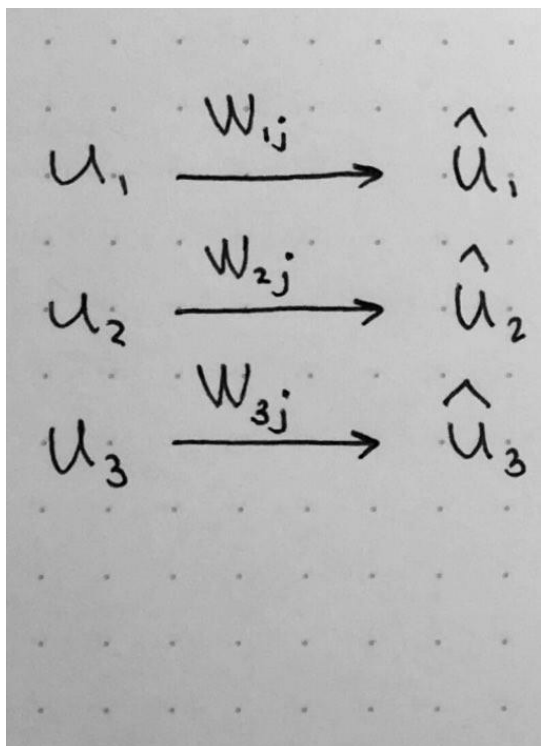 u₁ W₁ⱼ → û₁
u₂ W₂ⱼ → û₂
u₃ W₃ⱼ → û₃